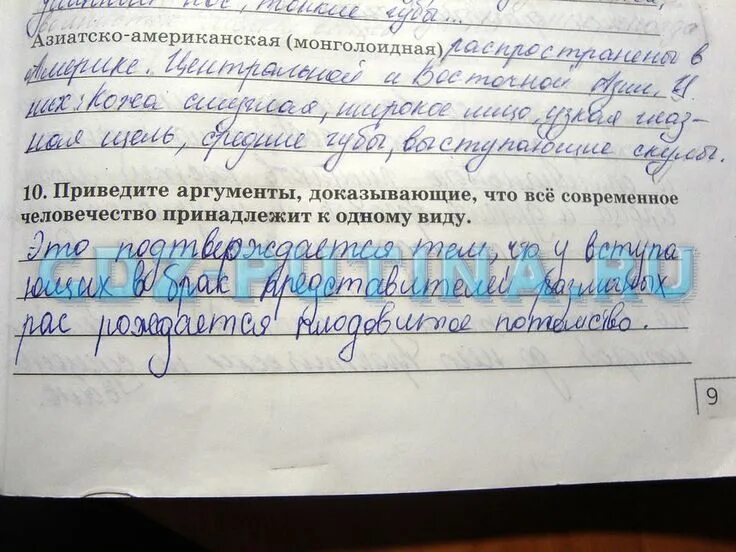 нос, тонкие губы...
Азиатско-американская (монголоидная) распространены в
Америке. Центральной и Восточной Азии. У
них: Кожа смуглая, широкое лицо, узкая глаз-
ная щель, средние губы, выступающие скулы.
10. Приведите аргументы, доказывающие, что всё современное
человечество принадлежит к одному виду.
Это подтверждается тем, что у вступа
ющих в брак представителей различных
рас рождается плодовитое потомство.
GDZ-PUTINA.RU
9